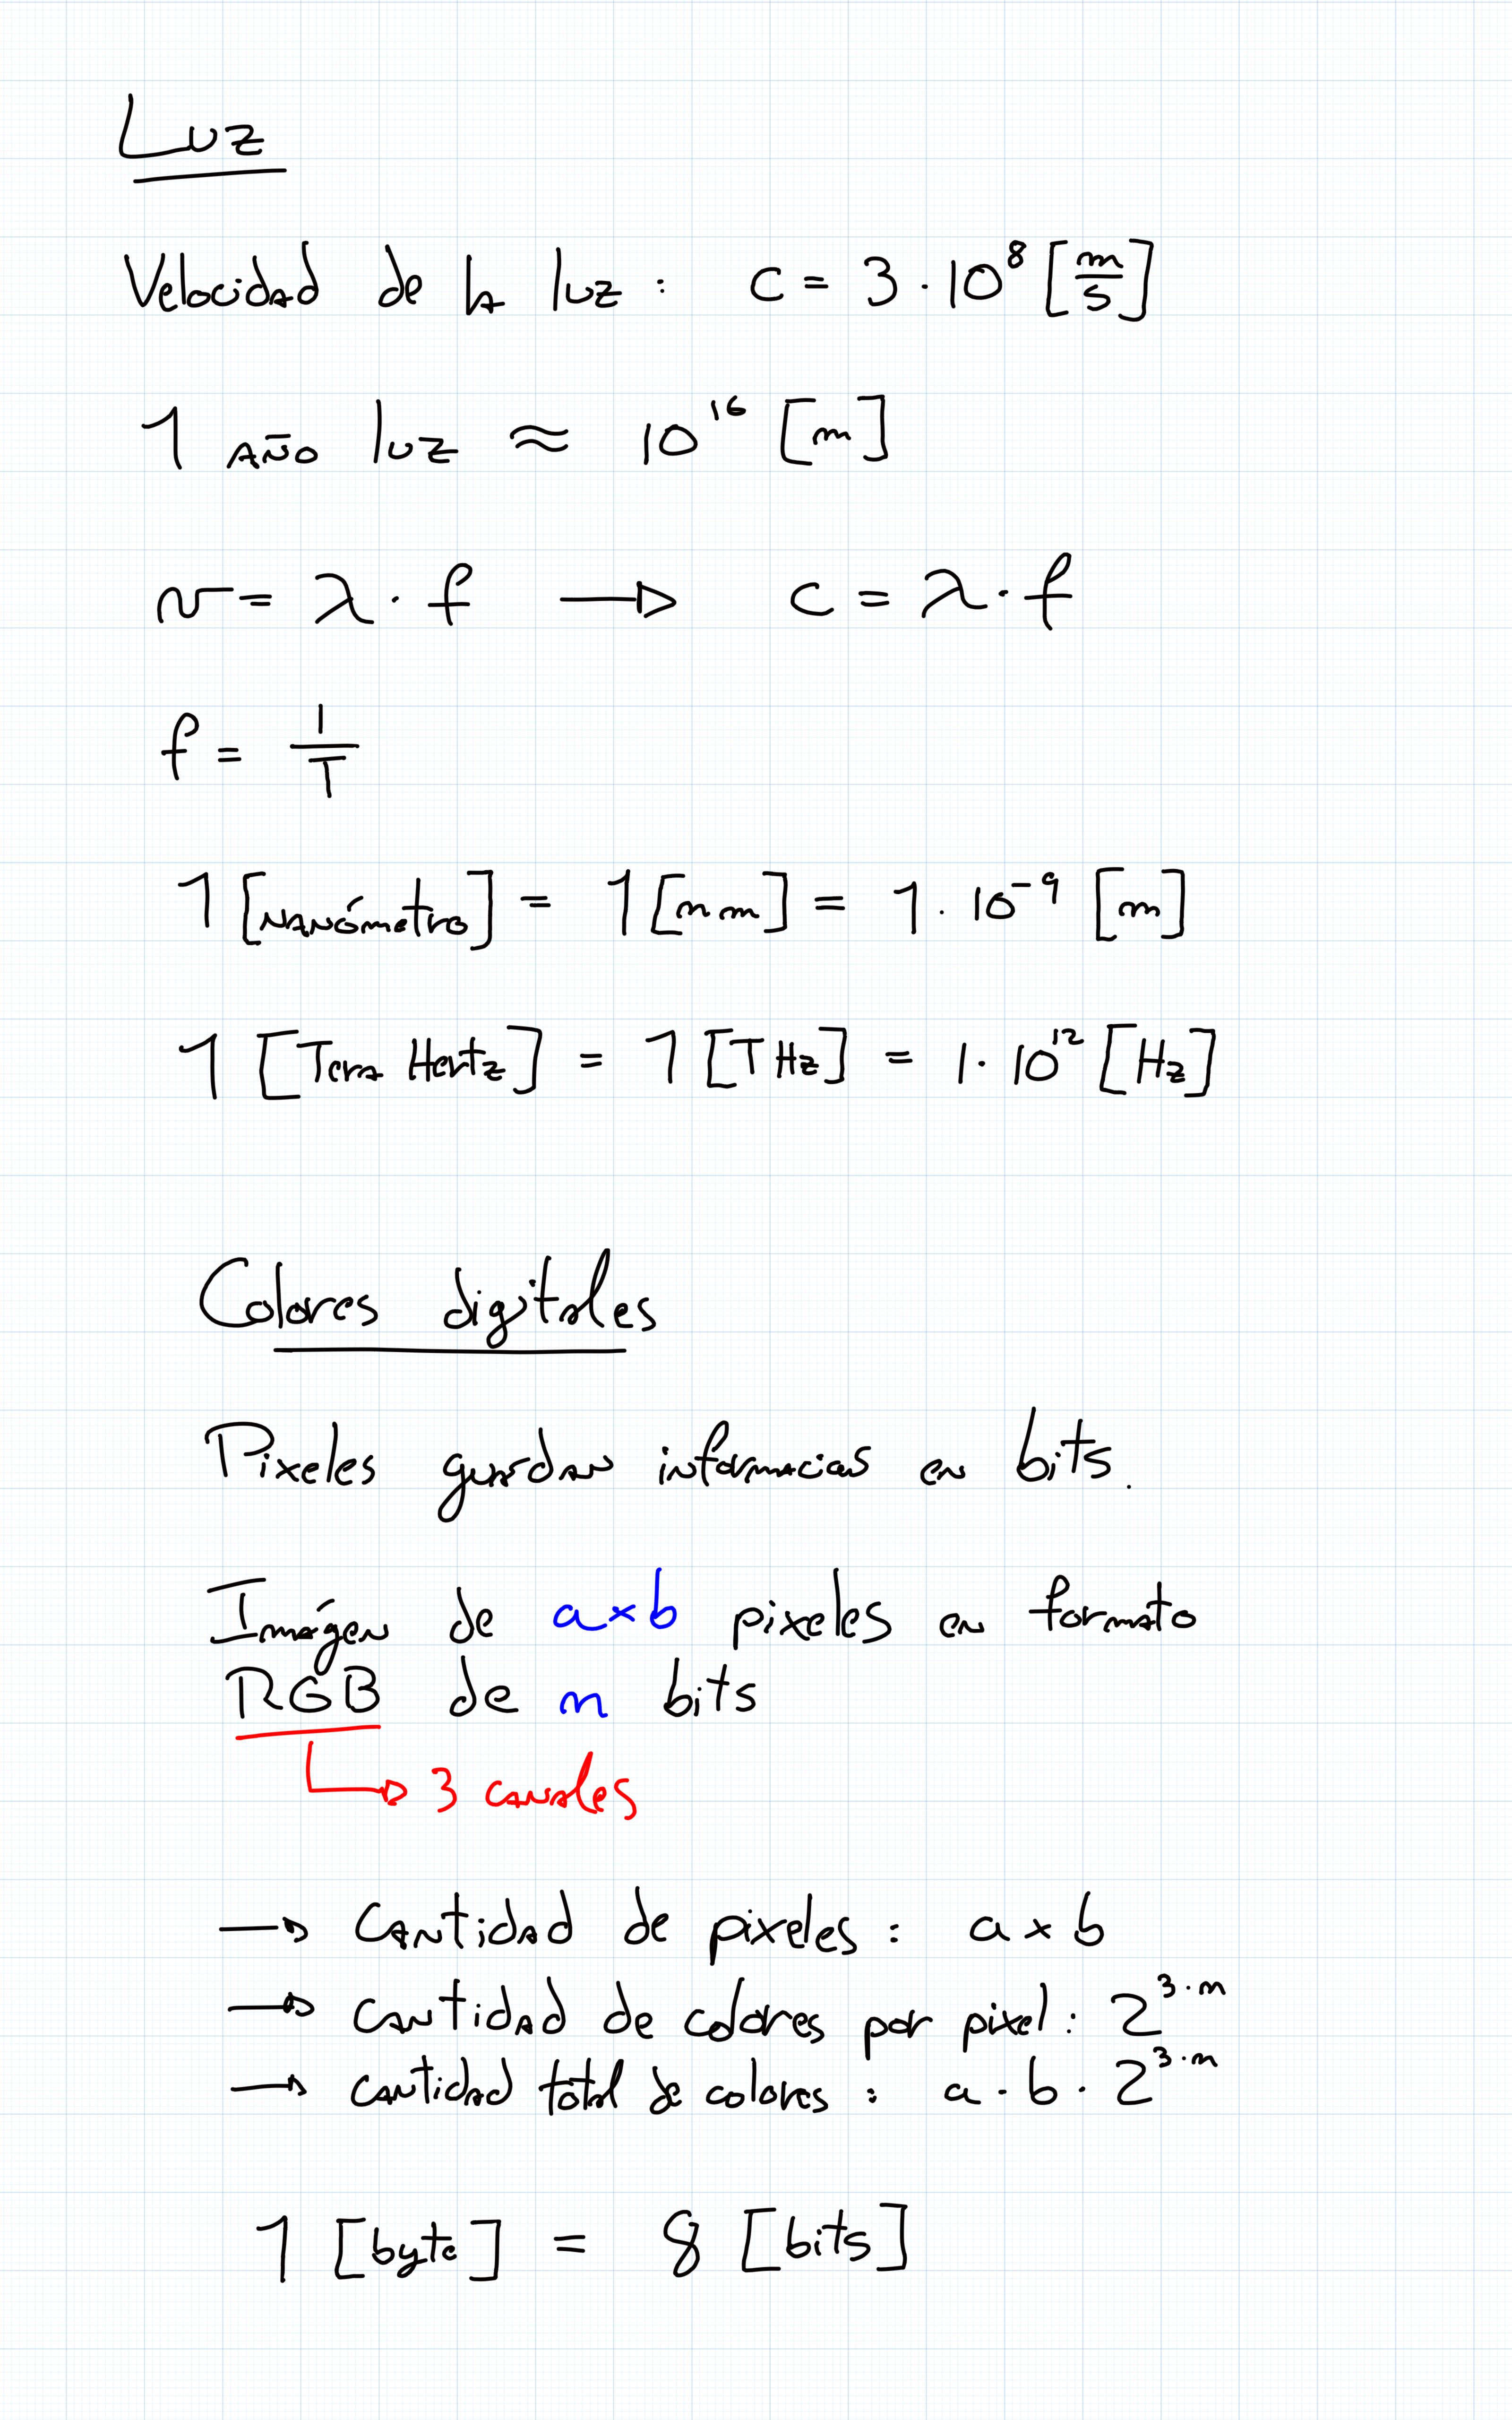 Luz
Velocidad de la luz : c = 3 · 10⁸ [m/s]
1 año luz ≈ 10¹⁶ [m]
v = λ · f → c = λ · f
f = 1/T
1 [nanómetro] = 1 [nm] = 1 · 10⁻⁹ [m]
1 [Tera Hertz] = 1 [THz] = 1 · 10¹² [Hz]
Colores digitales
Pixeles guardan informacion en bits.
Imágen de a×b pixeles en formato
RGB de n bits
↳ 3 canales
→ Cantidad de pixeles : a × b
→ cantidad de colores por pixel : 2³·ⁿ
→ cantidad total de colores : a · b · 2³·ⁿ
1 [byte] = 8 [bits]